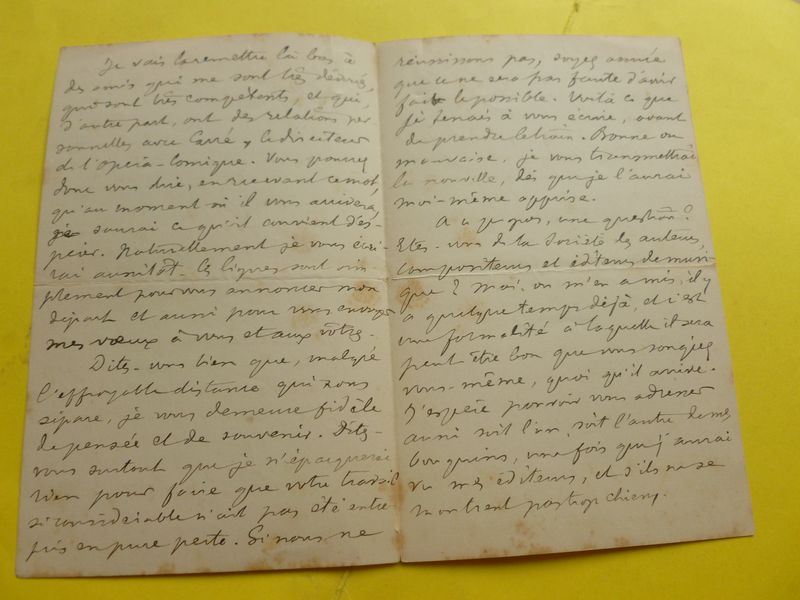 Je vais la remettre là bas à
des amis qui me sont très dévoués,
qui sont très compétents, et qui,
d'autre part, ont des relations per
sonnelles avec Carré, le directeur
de l'opéra-Comique. Vous pouvez
donc vous dire, en recevant ce mot,
qu'au moment où il vous arrivera,
je saurai ce qu'il convient d'es-
pérer. Naturellement je vous écri-
rai aussitôt. Ces lignes sont sim
plement pour vous annoncer mon
départ et aussi pour vous envoyer
mes vœux à vous et aux vôtres.
Dites-vous bien que, malgré
l'effroyable distance qui nous
sépare, je vous demeure fidèle
de pensée et de souvenir. Dites-
vous surtout que je n'épargnerai
rien pour faire que votre travail
si considérable n'ait pas été entre
pris en pure perte. Si nous ne
réussissons pas, soyez
que ce ne sera pas faute d'avoir
fait le possible. Voilà ce que
je tenais à vous écrire, avant
de prendre le train. Bonne ou
mauvaise, je vous transmettrai
la nouvelle, dès que je l'aurai
moi-même apprise.
A propos, une question?
Etes-vous de la Société des auteurs,
compositeurs et éditeurs de musi
que? Moi, on m'en a mis, il y
a quelque temps déjà, et c'est
une formalité à laquelle il sera
peut être bon que vous songiez
vous-même, quoi qu'il arrive.
J'espère pouvoir vous adresser
aussi soit l'un, soit l'autre de mes
bouquins, une fois que j'aurai
vu mes éditeurs, et s'ils ne se
montrent pas trop chiens.